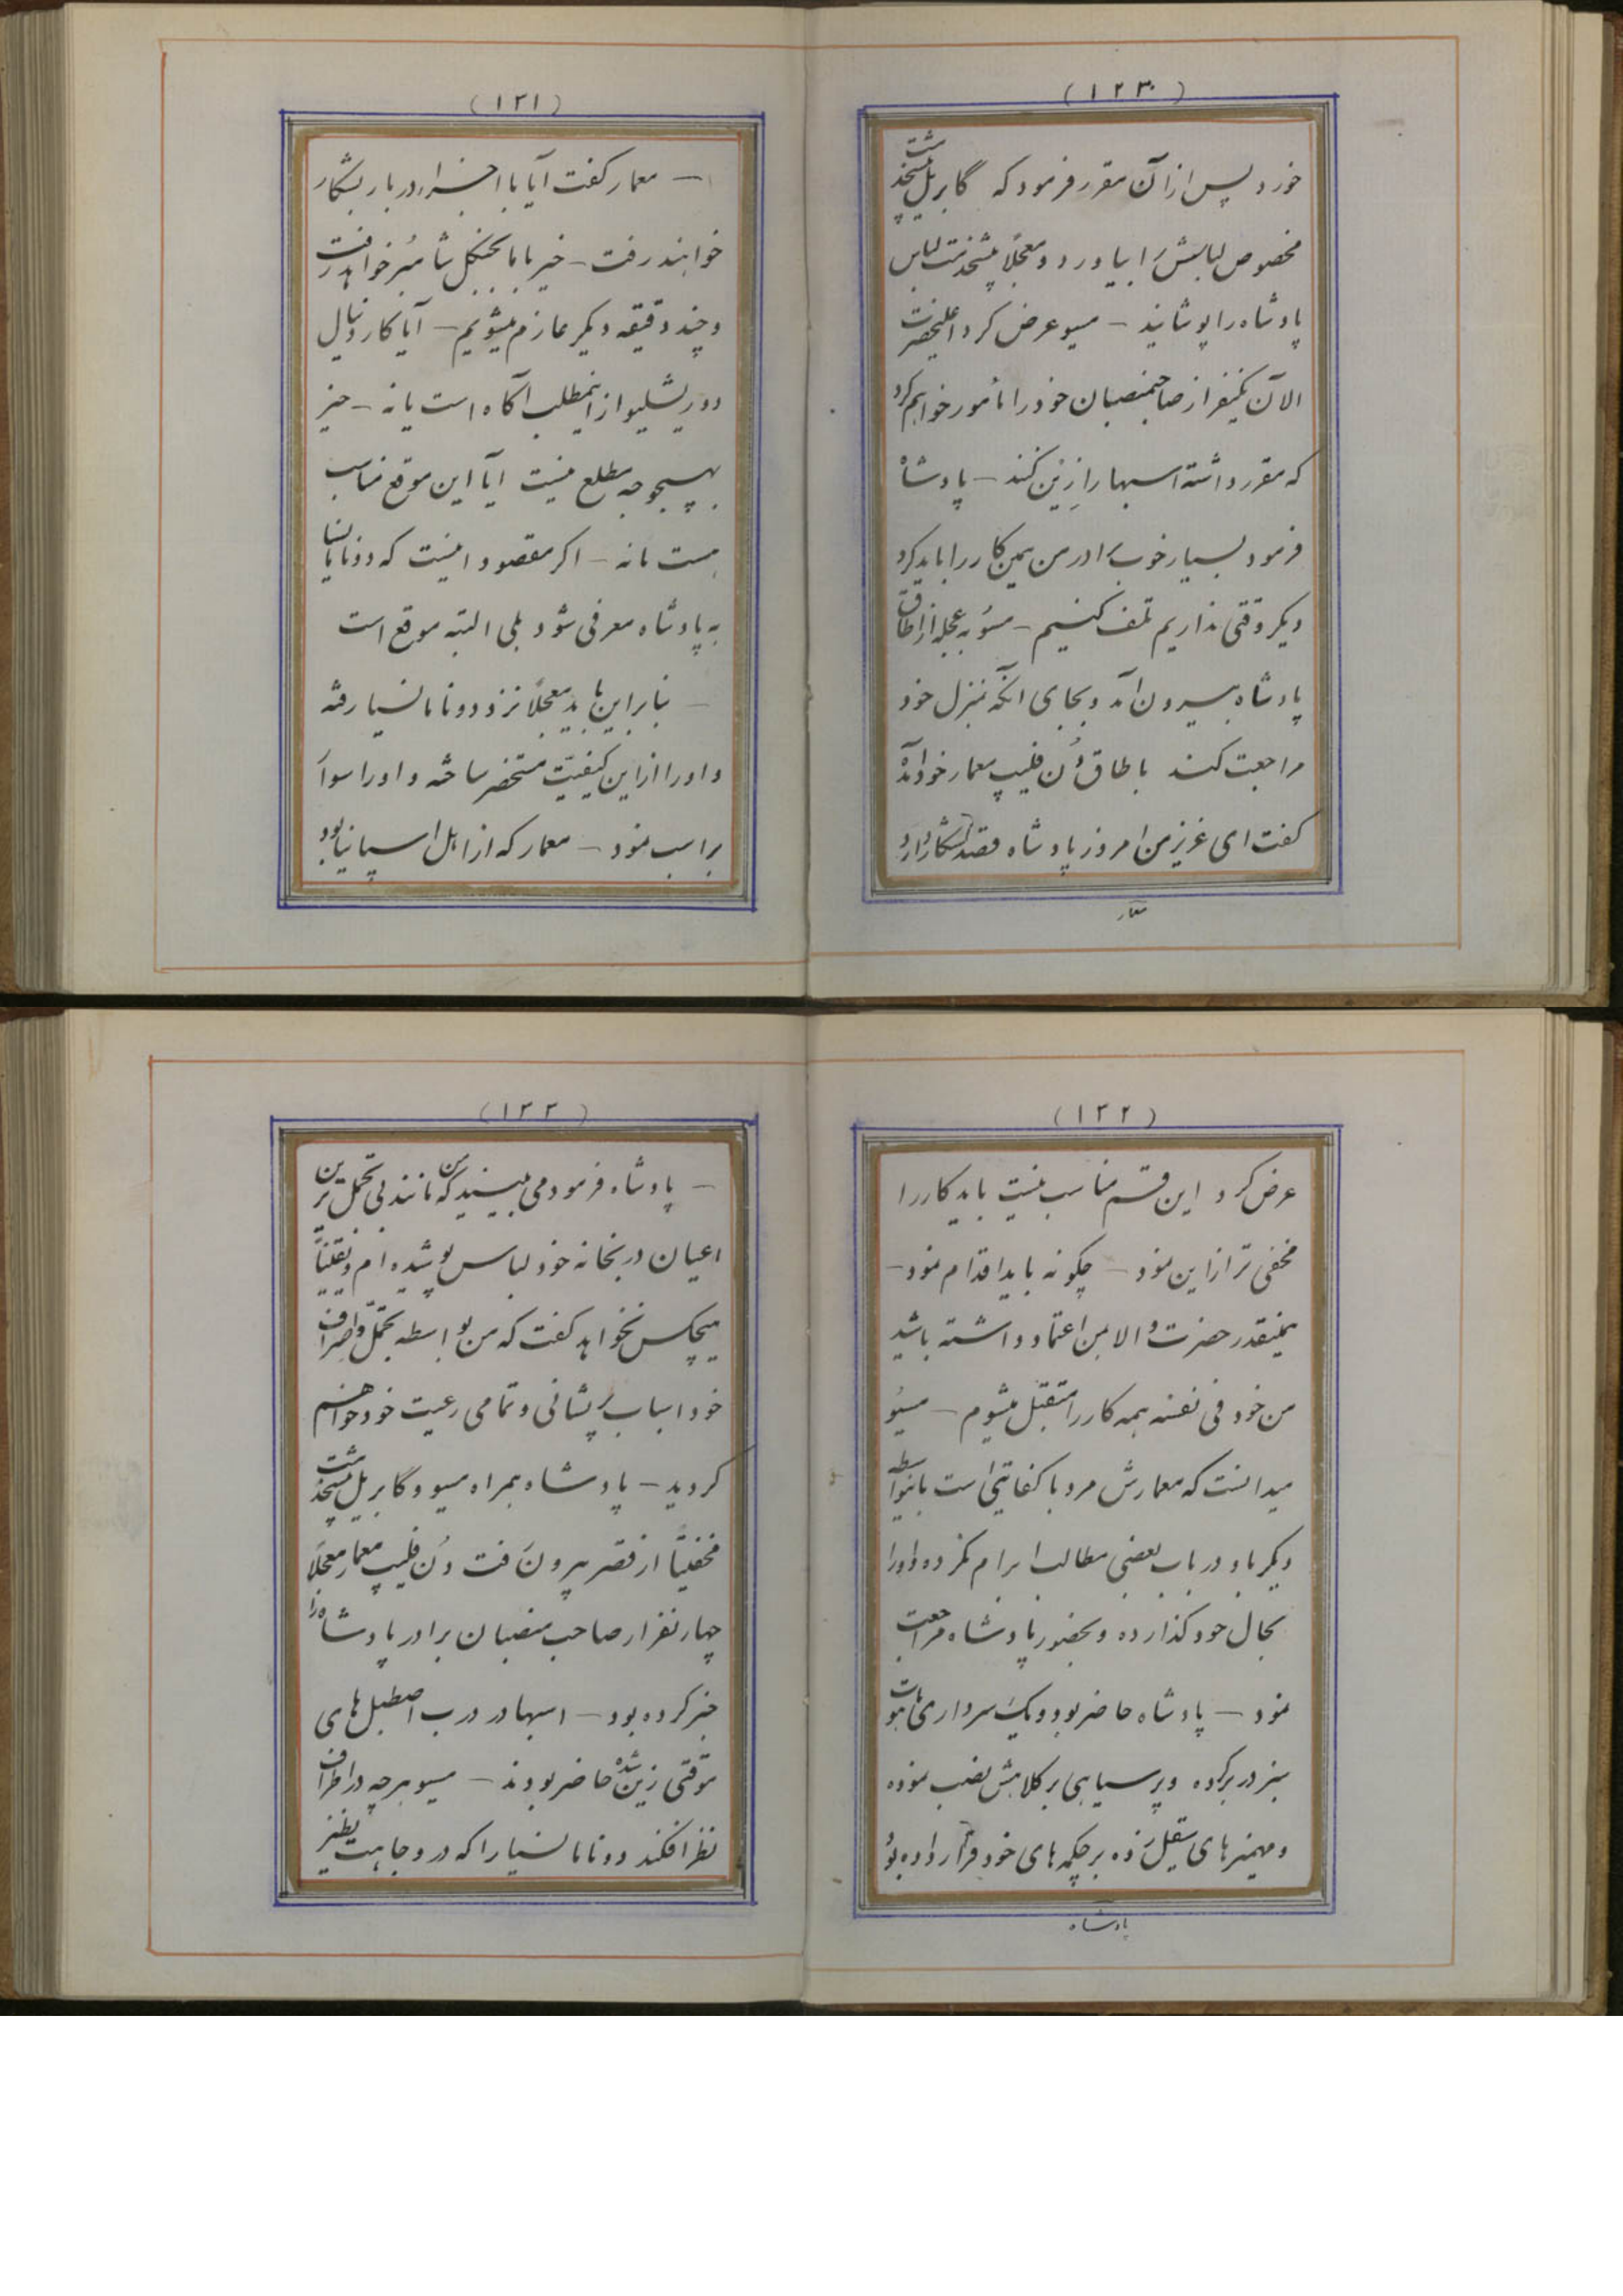 (۱۲۰)
خورد پس از آن مقرر فرمود که گابریل پیشخدمت
مخصوص لباسش را بیاورد و معجلاً پیشخدمت لباس
پادشاه را پوشانید – مسیو عرض کرد اعلیحضرت
الآن یکنفر از صاحبمنصبان خود را مأمور خواهم کرد
که مقرر داشته اسبها را زین کنند – پادشاه
فرمود بسیار خوب برادر من همین کار را باید کرد
دیگر وقتی نداریم تلف کنیم – مسیو به عجله از اطاق
پادشاه بیرون آمد و بجای آنکه بمنزل خود
مراجعت کند باطاق دُن فلیپ معمار خود آمد
گفت ای عزیز من امروز پادشاه قصد شکار دارد
معمار
(۱۲۱)
– معمار گفت آیا با اجزاء دربار بشکار
خواهند رفت – خیر با ما بجنگل شامبُر خواهد رفت
و چند دقیقه دیگر عازم میشویم – آیا کاردینال
دو ریشلیو از اینمطلب آگاه است یا نه – خیر
بهیچوجه مطلع نیست آیا این موقع مناسب
هست یا نه – اگر مقصود اینست که دونا مانسیا
به پادشاه معرفی شود بلی البته موقع است
– بنابراین باید معجلاً نزد دونا مانسیا رفته
و او را از این کیفیّت مستحضر ساخته و او را سوار
بر اسب نمود – معمار که از اهل اسپانیا بود
(۱۲۲)
عرض کرد این قسم مناسب نیست باید کار را
مخفی تر از این نمود – چگونه باید اقدام نمود –
همینقدر حضرت والا بمن اعتماد داشته باشید
من خود فی نفسه همه کار را متقبّل میشوم – مسیو
میدانست که معمارش مرد با کفایتی است باینواسطه
دیگر باو در باب بعضی مطالب ابرام نکرده و او را
بحال خود گذارده و بحضور پادشاه مراجعت
نمود – پادشاه حاضر بود و یک سرداری ماهوت
سبز در بر کرده و پر سیاهی بر کلاهش نصب نموده
و مهمیزهای صیقل زده بر چکمه های خود قرار داده بود
پادشاه
(۱۲۳)
– پادشاه فرمود می بینید که من مانند بی تجمل ترین
اعیان دربخانه خود لباس پوشیده ام و یقیناً
هیچکس نخواهد گفت که من بواسطه تجمّل و اصراف
خود اسباب پریشانی و تمامی رعیت خود خواهم
گردید – پادشاه همراه مسیو و گابریل پیشخدمت
مخفیّاً از قصر بیرون رفت دُن فلیپ معمار معجلاً
چهار نفر از صاحب منصبان برادر پادشاه را
خبر کرده بود – اسبها در درب اصطبل های
موقتی زین شده حاضر بودند – مسیو هرچه در اطراف
نظر افکند دونا مانسیا را که در وجاهت بی نظیر